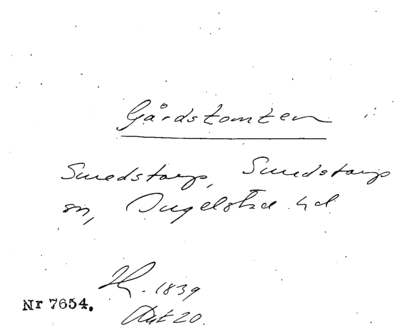 Gårdstomten
Smedstorp, Smedstorp
sn, Ingelstad hd
H. 1839
Akt 20.
Nr 7654.